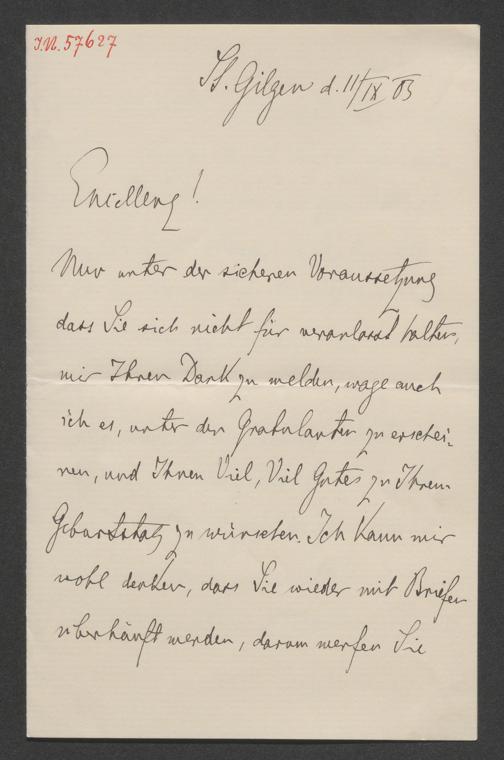 I.N. 57627
St. Gilgen d. 11/IX 03
Excellenz!
Nur unter der sicheren Voraussetzung
dass Sie sich nicht für veranlasst halten,
mir Ihren Dank zu melden, wage auch
ich es, unter den Gratulanten zu erschei-
nen, und Ihnen Viel, Viel Gutes zu Ihrem
Geburtstag zu wünschen. Ich kann mir
wohl denken, dass Sie wieder mit Briefen
überhäuft werden, darum werfen Sie